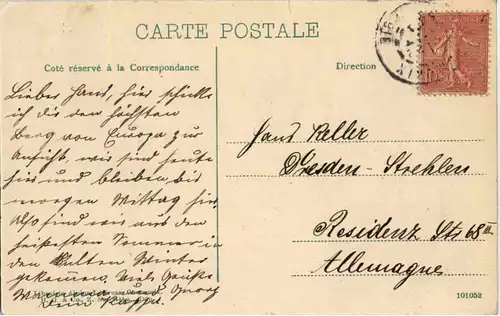 CARTE POSTALE
Coté réservé à la Correspondance
Direction
Lieber Hans, hier schicke
ich dir den höchsten
Berg von Europa zur
Ansicht, wir sind heute
hier und bleiben bis
morgen Mittag hier.
Also sind wir aus dem
heißesten Sommer in
den kalten Winter
gekommen. Viele Grüße
Dein
Hans Keller
Dresden-Strehlen
Residenz Str 68
Allemagne
101052